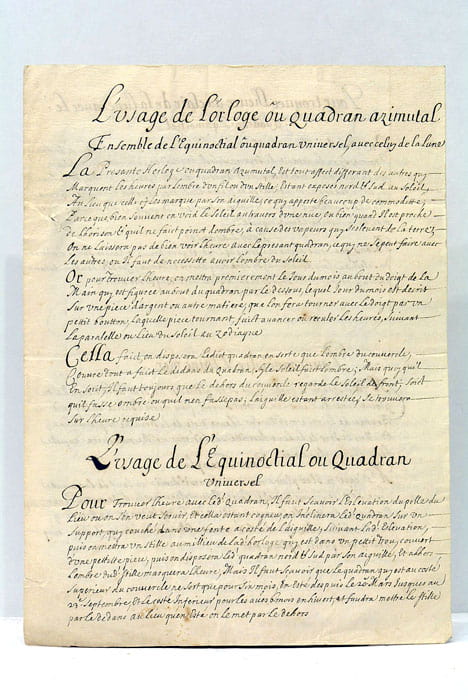 L'usage de L'orloge ou Quadran azimutal
Ensemble de L'Equinoctial ou quadran universel, avec celuy de la Lune
La Presante Horloge ou quadran azumutal, Est tout affect differant des autres qui
Marquent les heures par Lombre d'un fil ou d'un stille, Estant exposés nord & Sud au Soleil,
Au Lieu que celle cy Les marque par son aiguille, ce qui apporte beaucoup de commoditte,
Parceque bien souvent on void le Soleil au travers d'une nue, ou bien quand Il est proche
de L'horison & qu'il ne faict point d'ombre, à cause des vapeurs qui s'eslevent de la terre;
On ne Laissera pas de bien voir L'heure avec Le presant quadran, ce qui ne se peut faire avec
Les autres, ou Il faut de necessitte avoir L'ombre du Soleil.
Or pour trouver L'heure, on mettra premierement le Jour du mois au bout du doigt de La
Main qui est figurée au bout du quadran par le dessous, Lequel Jour du mois est descrit
sur une piece d'argent ou autre matiere, que L'on fera tourner avec Le doigt par un
pettit boutton, Laquelle piece tournant, fait avancer ou reculer Les heures, suivant
La paralelle ou Lieu du Soleil au Zodiaque
Cella faict, on disposera Ledict quadran en sorte que L'ombre du couvercle,
Couvre tout a faict Le dedans du Quadran, sy le Soleil faict L'ombre; Mais quoy qu'il
En soit, Il faut tousjours que Le dehors du couvercle regarde Le Soleil de front, soit
qu'il fasse ombre ou qu'il n'en fasse pas; L'aiguille estant arrestée, se trouvera
sur L'heure requise
L'usage de L'Equinoctial ou Quadran
Universel
Pour Trouver L'heure avec Led. Quadran, Il faut sçavoir L'Eslevation du polle du
Lieu ou on S'en veut servir, Et cella estant cogneu, on Inclinera Led. Quadran sur un
support, qui couché dans une fente a costé de L'aiguille, suivant Lad. Elevation,
puis on mettra un stille au millieu de L'horloge qui est dans un pettit trou, couvert
d'une pettitte piece, puis on disposera Led quadran nord & Sud par son aiguille, Et alhors
L'ombre dud. stille marquera L'heure, Mais Il faut sçavoir que Le quadran qui est au costé
superieur du couvercle ne sert que pour six mois, En Esté, despuis Le 20 Mars Jusques au
22e. Septembre, Et Le costé Inferieur pour les aues hmois en hivert, et faudra mettre Le stille
par Le dedans au lieu qu'en Esté on Le met par Le dehors